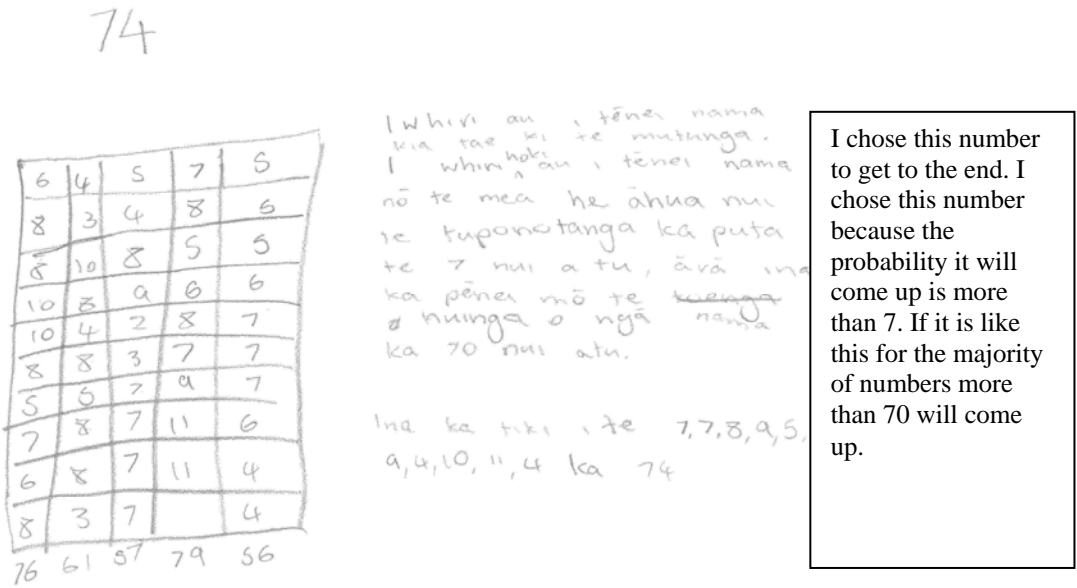 74
6 4 5 7 5
8 3 4 8 6
8 10 8 5 5
10 8 9 6 6
10 4 2 8 7
8 8 3 7 7
5 7 9 7
7 8 7 11 6
6 8 7 11 4
8 3 7 4
76 61 57 79 56
I whiri au i tēnei nama
kia tae ki te mutunga.
I whiri hoki au i tēnei nama
nō te mea he āhua nui
te tuponotanga ka puta
te 7 nui a tu, ārā ina
ka pēnei mō te tuenga
nuinga o ngā nama
ka 70 nui atu.
Ina ka tiki i te 7,7,8,9,5,
9,4,10,11,4 ka 74
I chose this number
to get to the end. I
chose this number
because the
probability it will
come up is more
than 7. If it is like
this for the majority
of numbers more
than 70 will come
up.